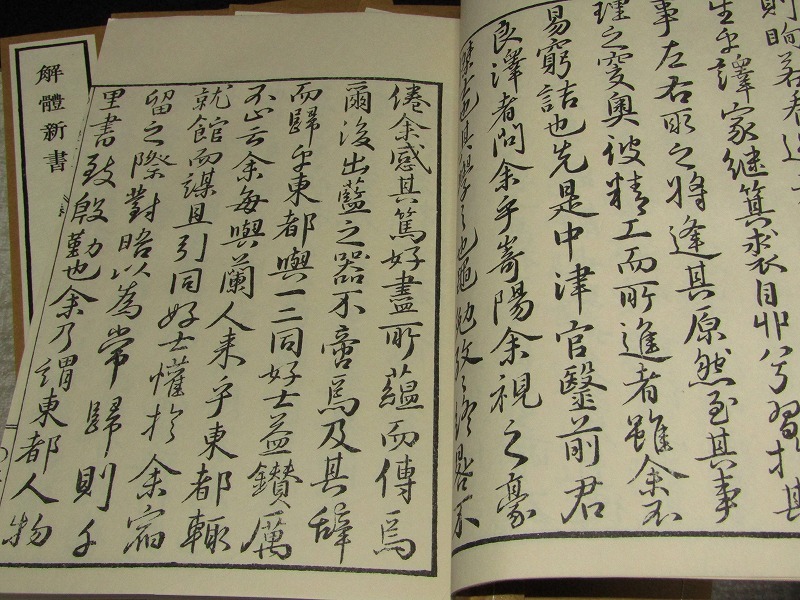 生乎譯家継箕裘自丱兮習於其
事左右取之将逢其原然至其事
理之窔奥彼精工而所進者雖余不
易窮詰也先是中津官醫前君
良澤者問余乎嵜陽余視之豪
士也其學之也黽勉孜々不
倦余感其篤好盡所蘊而傳焉
爾後出藍之器不啻焉及其辞
而歸乎東都與一二同好士益鑚厲
不止云余每與蘭人来乎東都輙
就館而謀且引同好士懽於余宿
留之際對晤以為常歸則千
里書致殷勤也余乃謂東都人物
解體新書